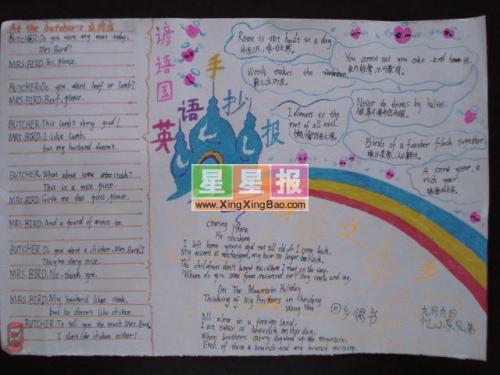 At the butcher's 在肉店
BUTCHER: Do you want any meat today,
Mrs. Bird?
MRS. BIRD: Yes, please.
BUTCHER: Do you want beef or lamb?
MRS. BIRD: Beef, please.
BUTCHER: This lamb's very good!
MRS. BIRD: I like lamb,
but my husband doesn't.
BUTCHER: What about some steak?
This is a nice piece.
MRS. BIRD: Give me that piece, please.
MRS. BIRD: And a pound of mince, too.
BUTCHER: Do you want a chicken, Mrs. Bird?
They're very nice.
MRS. BIRD: No, thank you.
MRS. BIRD: My husband likes steak,
but he doesn't like chicken.
BUTCHER: To tell you the truth, Mrs. Bird,
I don't like chicken either!
谚语国
英语手抄报
Rome is not built in a day
Work makes the
Idleness is the
root of all evil
You cannot eat your cake and have it.
Never do things by halves.
Birds of a feather flock together
A good name, a
rich
星星报
www.XingXingBao.com
Coming Home
He Zhizhang
I left home young and not till old do I come back,
My accent is unchanged, my hair no longer black.
The children don't know me, whom I meet on the way,
"Where do you come from, reverend sir?" they smile and say.
On The Mountain Holiday
Thinking of My Brothers in Shandong
Wang Wei
All alone in a foreign land,
I am twice as homesick on this day,
When brothers carry dogwood up the mountain,
Each of them a branch and my branch missing.
回乡偶书
九月九日
忆山东兄弟